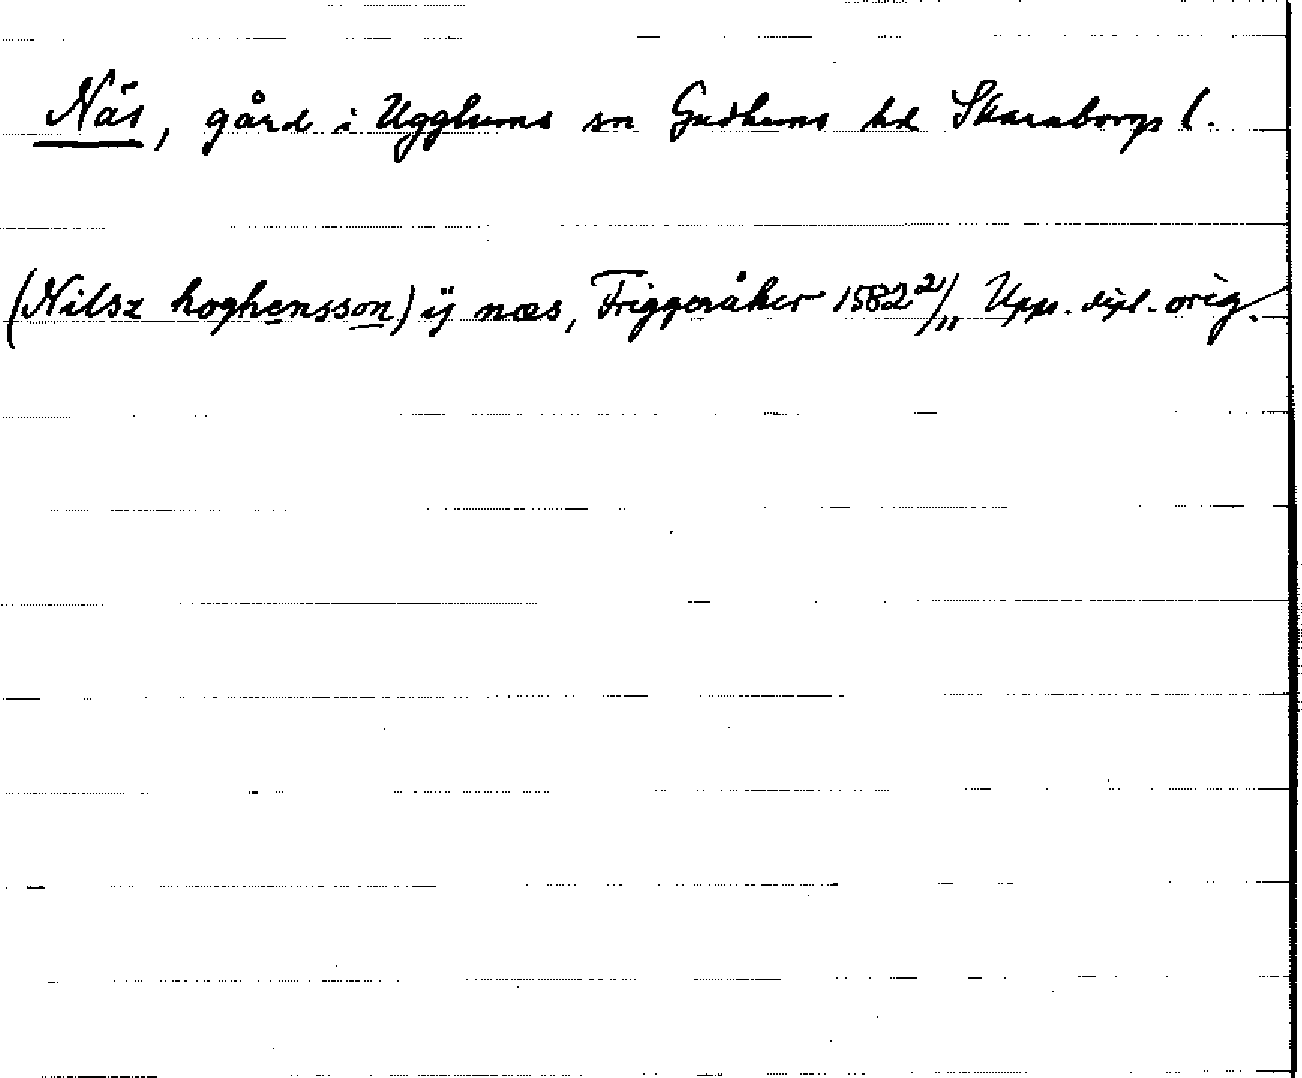 Näs, gård i Ugglums sn Gudhems hd Skaraborgs l.
(Nilsz hoghensson) ij næs, Friggeråker 1582 2/11 Upps. dipl. orig.